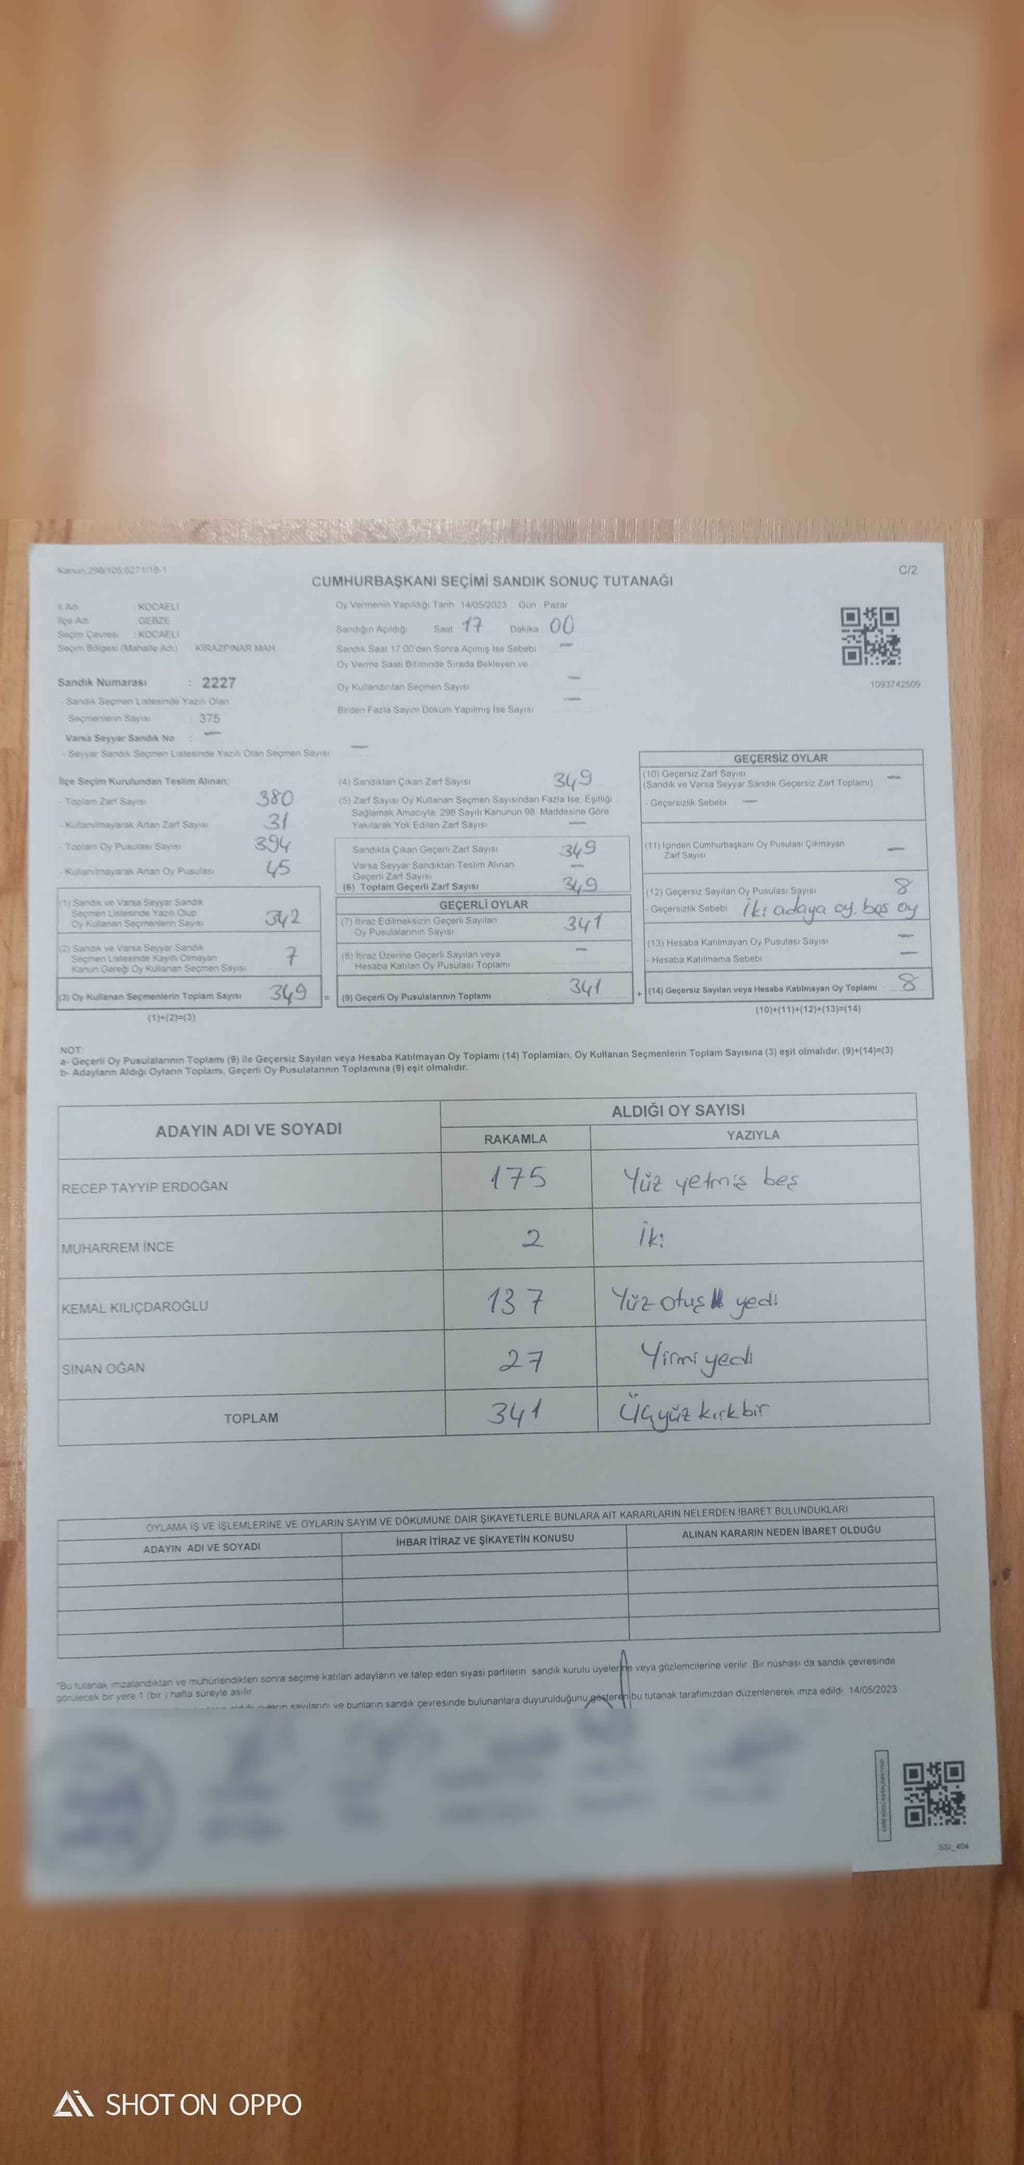 Kanun 298/105 6271/18-1
C/2
CUMHURBAŞKANI SEÇİMİ SANDIK SONUÇ TUTANAĞI
İl Adı KOCAELİ
İlçe Adı GEBZE
Seçim Çevresi : KOCAELİ
Seçim Bölgesi (Mahalle Adı) KİRAZPINAR MAH.
Sandık Numarası : 2227
- Sandık Seçmen Listesinde Yazılı Olan
Seçmenlerin Sayısı : 375
Varsa Seyyar Sandık No : —
- Seyyar Sandık Seçmen Listesinde Yazılı Olan Seçmen Sayısı —
Oy Vermenin Yapıldığı Tarih :14/05/2023 Gün : Pazar
Sandığın Açıldığı Saat 17 Dakika 00
Sandık Saat 17.00'den Sonra Açımış İse Sebebi —
Oy Verme Saati Bitiminde Sırada Bekleyen ve
Oy Kullandırılan Seçmen Sayısı —
Birden Fazla Sayım Döküm Yapılmış İse Sayısı —
1093742509
İlçe Seçim Kurulundan Teslim Alınan;
- Toplam Zarf Sayısı 380
- Kullanılmayarak Artan Zarf Sayısı 31
- Toplam Oy Pusulası Sayısı 394
- Kullanılmayarak Artan Oy Pusulası 45
(1) Sandık ve Varsa Seyyar Sandık
Seçmen Listesinde Yazılı Olup
Oy Kullanan Seçmenlerin Sayısı 342
(2) Sandık ve Varsa Seyyar Sandık
Seçmen Listesinde Kayıtlı Olmayan
Kanun Gereği Oy Kullanan Seçmen Sayısı 7
(3) Oy Kullanan Seçmenlerin Toplam Sayısı 349 =
(1)+(2)=(3)
(4) Sandıktan Çıkan Zarf Sayısı 349
(5) Zarf Sayısı Oy Kullanan Seçmen Sayısından Fazla İse, Eşitliği
Sağlamak Amacıyla, 298 Sayılı Kanunun 98. Maddesine Göre
Yakılarak Yok Edilen Zarf Sayısı —
Sandıkta Çıkan Geçerli Zarf Sayısı 349
Varsa Seyyar Sandıktan Teslim Alınan
Geçerli Zarf Sayısı —
(6) Toplam Geçerli Zarf Sayısı 349
GEÇERLİ OYLAR
(7) İtiraz Edilmeksizin Geçerli Sayılan
Oy Pusulalarının Sayısı 341
(8) İtiraz Üzerine Geçerli Sayılan veya
Hesaba Katılan Oy Pusulası Toplamı —
(9) Geçerli Oy Pusulalarının Toplamı 341 +
GEÇERSİZ OYLAR
(10) Geçersiz Zarf Sayısı
(Sandık ve Varsa Seyyar Sandık Geçersiz Zarf Toplamı) —
- Geçersizlik Sebebi —
(11) İçinden Cumhurbaşkanı Oy Pusulası Çıkmayan
Zarf Sayısı —
(12) Geçersiz Sayılan Oy Pusulası Sayısı 8
- Geçersizlik Sebebi İki adaya oy, boş oy
(13) Hesaba Katılmayan Oy Pusulası Sayısı —
- Hesaba Katılmama Sebebi —
(14) Geçersiz Sayılan veya Hesaba Katılmayan Oy Toplamı 8
(10)+(11)+(12)+(13)=(14)
NOT:
a- Geçerli Oy Pusulalarının Toplamı (9) ile Geçersiz Sayılan veya Hesaba Katılmayan Oy Toplamı (14) Toplamları, Oy Kullanan Seçmenlerin Toplam Sayısına (3) eşit olmalıdır. (9)+(14)=(3)
b- Adayların Aldığı Oyların Toplamı, Geçerli Oy Pusulalarının Toplamına (9) eşit olmalıdır.
ADAYIN ADI VE SOYADI
ALDIĞI OY SAYISI
RAKAMLA YAZIYLA
RECEP TAYYİP ERDOĞAN 175 Yüz yetmiş beş
MUHARREM İNCE 2 İki
KEMAL KILIÇDAROĞLU 137 Yüz otuz yedi
SİNAN OĞAN 27 Yirmi yedi
TOPLAM 341 Üçyüz kırk bir
OYLAMA İŞ VE İŞLEMLERİNE VE OYLARIN SAYIM VE DÖKÜMÜNE DAİR ŞİKAYETLERLE BUNLARA AİT KARARLARIN NELERDEN İBARET BULUNDUKLARI
ADAYIN ADI VE SOYADI İHBAR İTİRAZ VE ŞİKAYETİN KONUSU ALINAN KARARIN NEDEN İBARET OLDUĞU
"Bu tutanak imzalandıktan ve mühürlendikten sonra seçime katılan adayların ve talep eden siyasi partilerin sandık kurulu üyelerine veya gözlemcilerine verilir. Bir nüshası da sandık çevresinde
görülecek bir yere 1 (bir ) hafta süreyle asılır.
sayılarını ve bunların sandık çevresinde bulunanlara duyurulduğunu gösteren bu tutanak tarafımızdan düzenlenerek imza edildi. 14/05/2023
SSI_404
SHOT ON OPPO